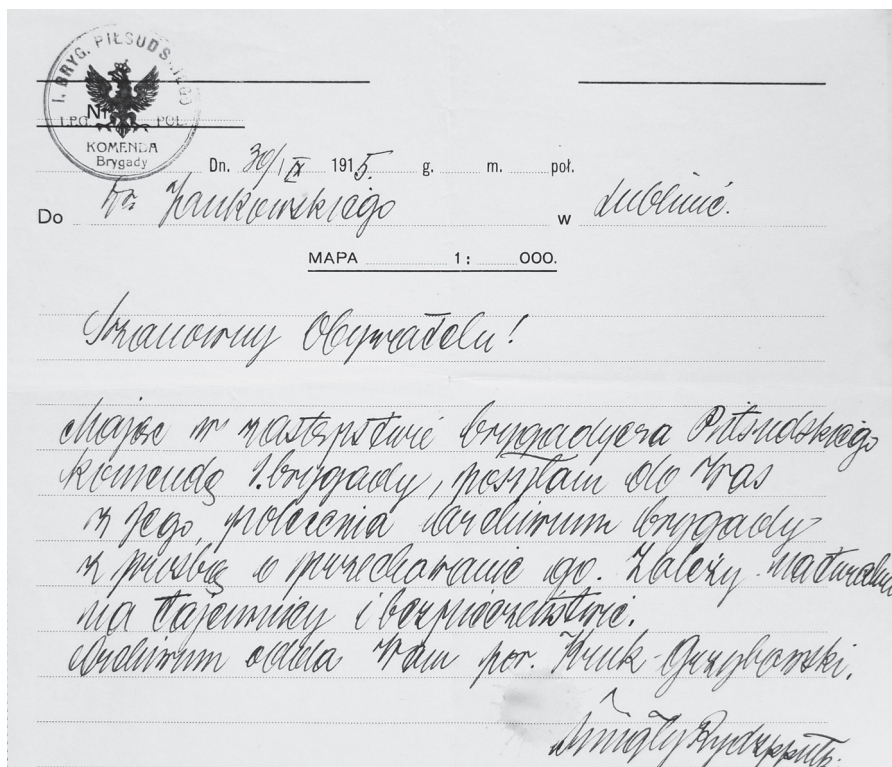 I. BRYG. PIŁSUDSKIEGO
Nr
LEG. POL.
KOMENDA
Brygady
Dn. 30/IX 1915. g. m. poł.
Do Dr. Jankowskiego w Lublinie.
MAPA 1: 000.
Szanowny Obywatelu!
Mając w zastępstwie brygadyera Piłsudskiego
komendę 1. brygady, posyłam do Was
z jego polecenia archiwum brygady
z prośbą o przechowanie go. Zależy naturalnie
na tajemnicy i bezpieczeństwie.
Archiwum odda Wam por. Kruk-Grzybowski.
Śmigły Rydz ppułk.